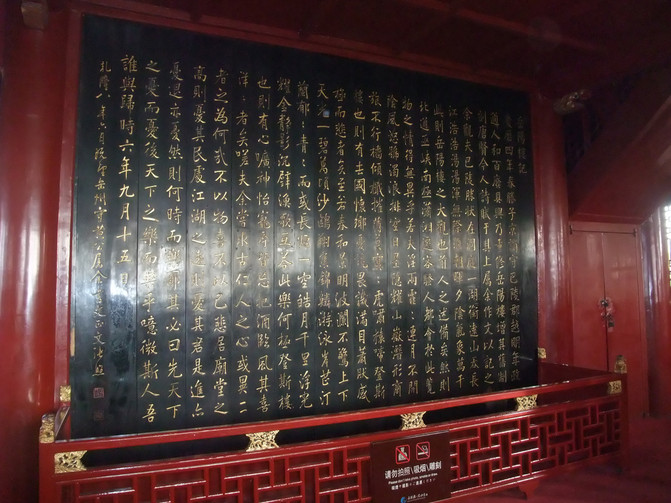 岳陽樓記
慶曆四年春滕子京謫守巴陵郡越明年政
通人和百廢具興乃重修岳陽樓增其舊制
刻唐賢今人詩賦于其上屬余作文以記之
余觀夫巴陵勝狀在洞庭一湖銜遠山吞長
江浩浩湯湯橫無際涯朝暉夕陰氣象萬千
此則岳陽樓之大觀也前人之述備矣然則
北通巫峽南極瀟湘遷客騷人都會於此覽
物之情得無異乎若夫霪雨霏:連月不開
陰風怒號濁浪排空日星隱耀山嶽潛形商
旅不行檣傾楫摧薄暮冥:虎嘯猿啼登斯
樓也則有去國懷鄉憂讒畏譏滿目蕭然感
極而悲者矣至若春和景明波瀾不驚上下
天光一碧萬頃沙鷗翔集錦鱗游泳岸芷汀
蘭郁:青:而或長煙一空皓月千里浮光
耀金靜影沉璧漁歌互答此樂何極登斯樓
也則有心曠神怡寵辱皆忘把酒臨風其喜
洋:者矣嗟夫余嘗求古仁人之心或異二
者之為何哉不以物喜不以己悲居廟堂之
高則憂其民處江湖之遠則憂其君是進亦
憂退亦憂然則何時而樂耶其必曰先天下
之憂而憂後天下之樂而樂乎噫微斯人吾
誰與歸時六年九月十五日
乾隆八年六月既望岳州守黃
请勿拍照\吸烟\雕刻